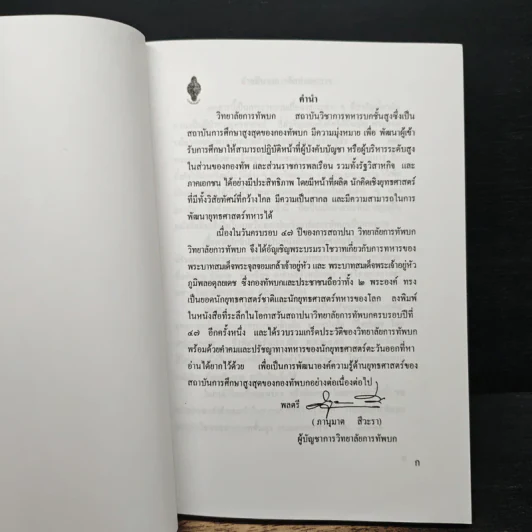 คำนำ
วิทยาลัยการทัพบก สถาบันวิชาการทหารบกชั้นสูงซึ่งเป็น
สถาบันการศึกษาสูงสุดของกองทัพบก มีความมุ่งหมาย เพื่อ พัฒนาผู้เข้า
รับการศึกษาให้สามารถปฏิบัติหน้าที่ผู้บังคับบัญชา หรือผู้บริหารระดับสูง
ในส่วนของกองทัพ และส่วนราชการพลเรือน รวมทั้งรัฐวิสาหกิจ และ
ภาคเอกชน ได้อย่างมีประสิทธิภาพ โดยมีหน้าที่ผลิต นักคิดเชิงยุทธศาสตร์
ที่มีทั้งวิสัยทัศน์ที่กว้างไกล มีความเป็นสากล และมีความสามารถในการ
พัฒนายุทธศาสตร์ทหารได้
เนื่องในวันครบรอบ ๔๗ ปีของการสถาปนา วิทยาลัยการทัพบก
วิทยาลัยการทัพบก จึงได้อัญเชิญพระบรมราโชวาทเกี่ยวกับการทหารของ
พระบาทสมเด็จพระจุลจอมเกล้าเจ้าอยู่หัว และ พระบาทสมเด็จพระเจ้าอยู่หัว
ภูมิพลอดุลยเดช ซึ่งกองทัพบกและประชาชนถือว่าทั้ง ๒ พระองค์ ทรง
เป็นยอดนักยุทธศาสตร์ชาติและนักยุทธศาสตร์ทหารของโลก ลงพิมพ์
ในหนังสือที่ระลึกในโอกาสวันสถาปนาวิทยาลัยการทัพบกครบรอบปีที่
๔๗ อีกครั้งหนึ่ง และได้รวบรวมเกร็ดประวัติของวิทยาลัยการทัพบก
พร้อมด้วยคำคมและปรัชญาทางทหารของนักยุทธศาสตร์ตะวันออกที่หา
อ่านได้ยากไว้ด้วย เพื่อเป็นการพัฒนาองค์ความรู้ด้านยุทธศาสตร์ของ
สถาบันการศึกษาสูงสุดของกองทัพบกอย่างต่อเนื่องต่อไป
พลตรี
(ภาณุมาต สีวะรา)
ผู้บัญชาการวิทยาลัยการทัพบก
ก